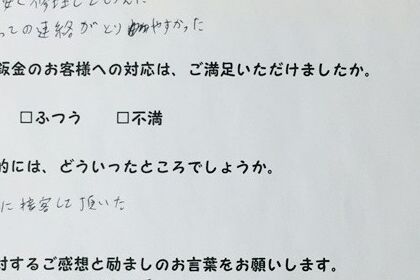 っての連絡がとりやすかった
鈑金のお客様への対応は、ご満足いただけましたか。
□ふつう □不満
的には、どういったところでしょうか。
に接客して頂いた
対するご感想と励ましのお言葉をお願いします。